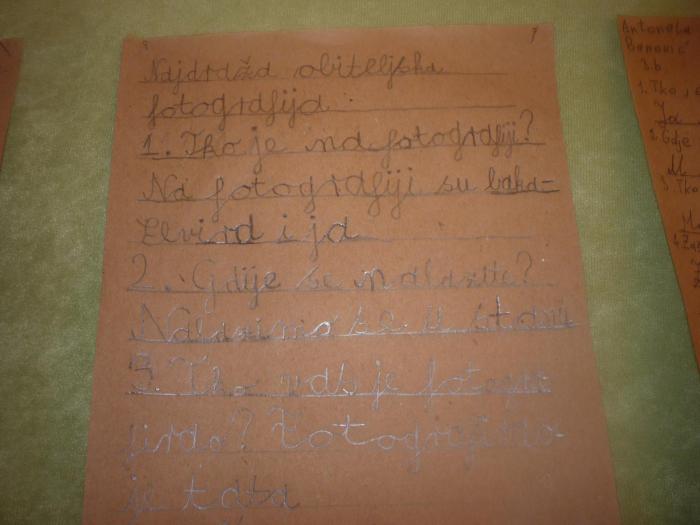 Najdraža obiteljska
fotografija.
1. Tko je na fotografiji?
Na fotografiji su baka
Elvira i ja
2. Gdje se nalazite?
Nalazimo se u stanu
3. Tko vas je fotogra
firao? Fotografirao
je tata
Antonela
3.b
1. Tko je
Ja
2. Gdje
U
3. Tko